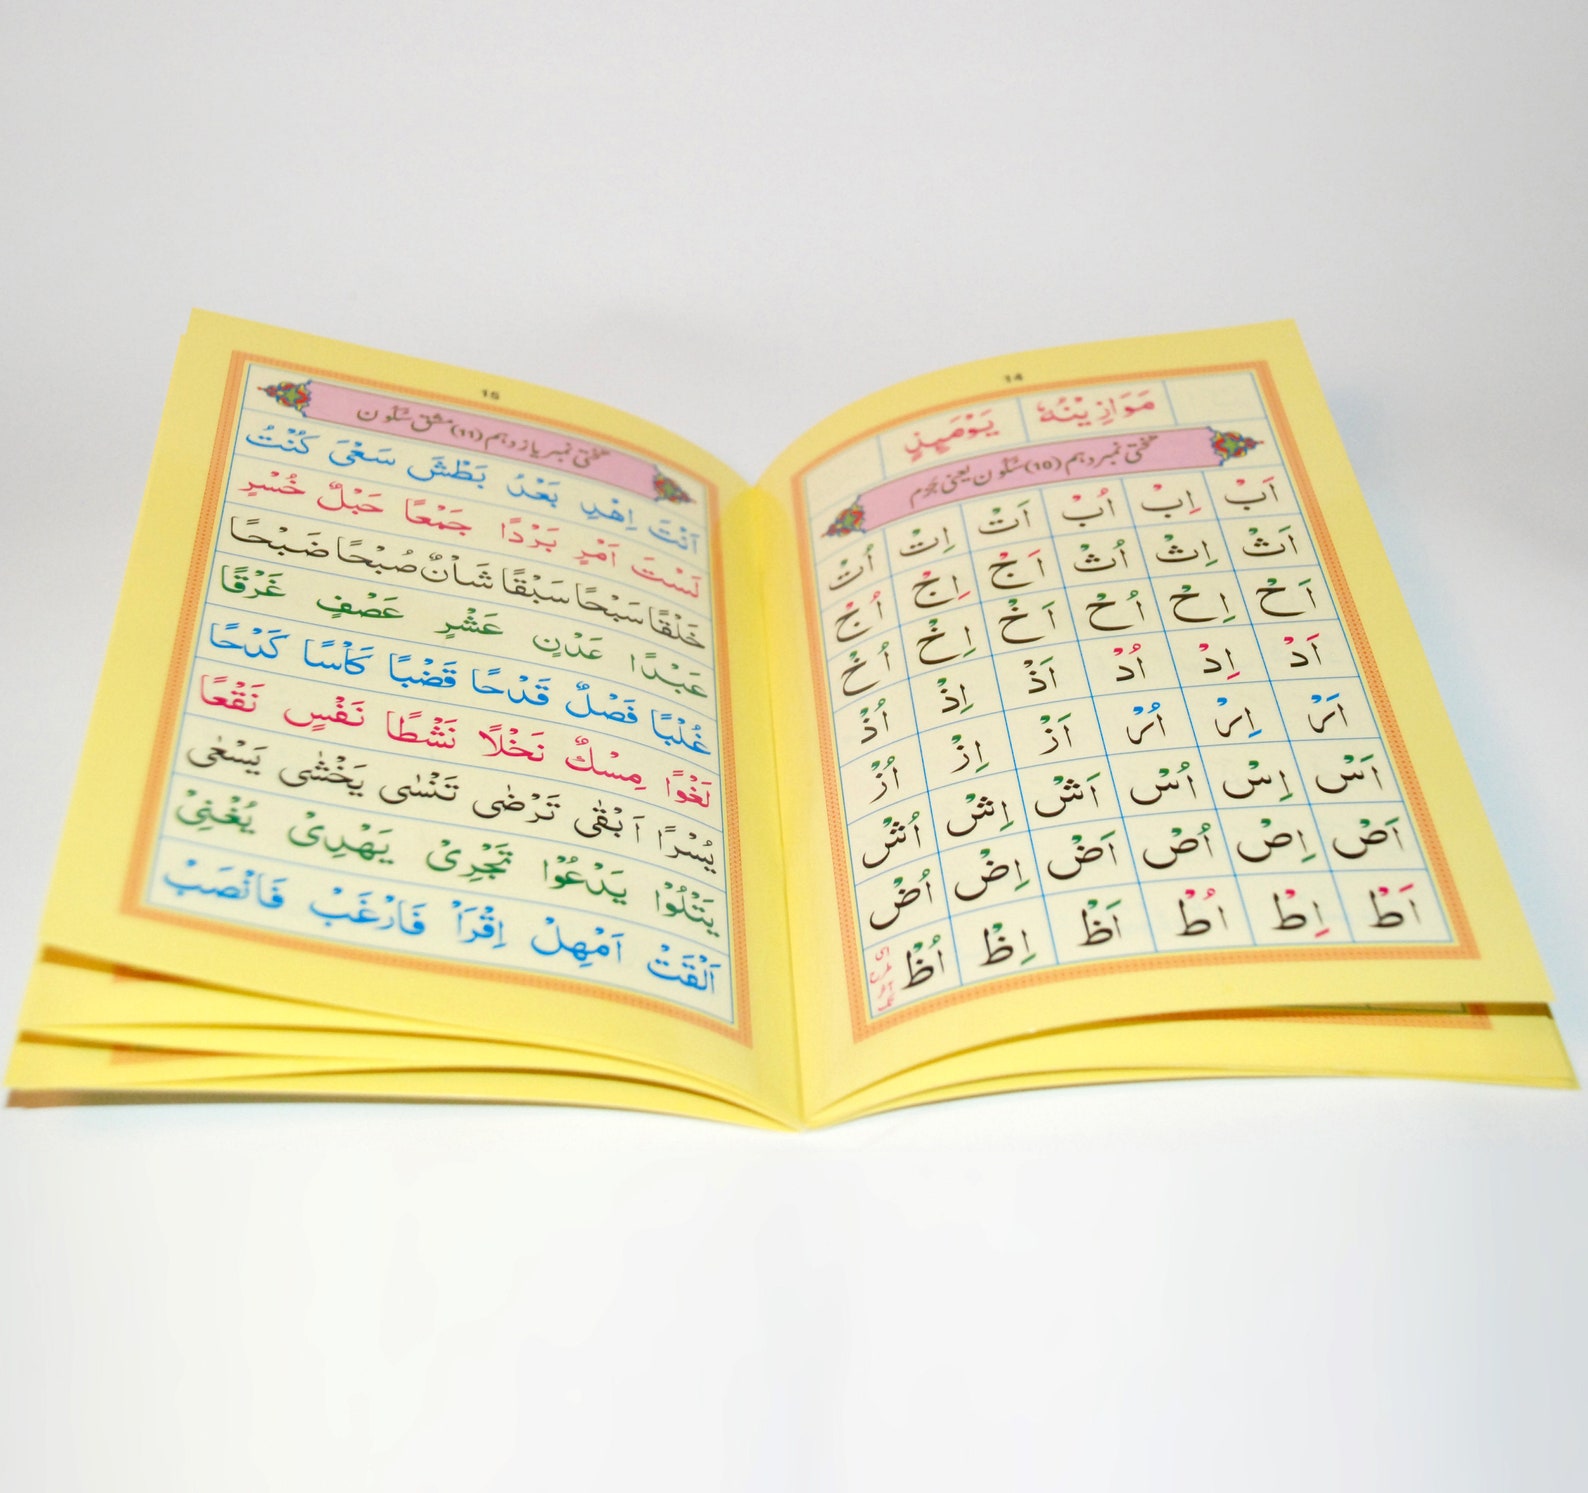 14
مَوَازِيْنُهٗ يَوْمَئِذٍ
تختی نمبر دہم (10) سکون یعنی جزم
اَبْ اِبْ اُبْ اَتْ اِتْ اُتْ
اَثْ اِثْ اُثْ اَجْ اِجْ اُجْ
اَحْ اِحْ اُحْ اَخْ اِخْ اُخْ
اَدْ اِدْ اُدْ اَذْ اِذْ اُذْ
اَرْ اِرْ اُرْ اَزْ اِزْ اُزْ
اَسْ اِسْ اُسْ اَشْ اِشْ اُشْ
اَصْ اِصْ اُصْ اَضْ اِضْ اُضْ
اَطْ اِطْ اُطْ اَظْ اِظْ اُظْ
15
تختی نمبر یازدہم (11) مشق سکون
اَنْتَ اِهْدِ بَعْدُ بَطْشَ سَعْىَ كُنْتُ
لَسْتَ اَمْرٍ بَرْدًا جَمْعًا حَبْلٌ خُسْرٍ
خَلْقًا سَبْحًا سَبْقًا شَاْنٌ صُبْحًا ضَبْحًا
عَبْدًا عَدْنٍ عَشْرٍ عَصْفٍ غَرْقًا
غُلْبًا فَصْلٌ قَدْحًا قَضْبًا كَاْسًا كَدْحًا
لَغْوًا مِسْكٌ نَخْلًا نَشْطًا نَفْسٍ نَقْعًا
يُسْرًا اَبْقٰى تَرْضٰى تَنْسٰى يَخْشٰى يَسْعٰى
يَتْلُوْا يَدْعُوْا تَجْرِىْ يَهْدِىْ يُغْنِىْ
اَلْقَتْ اَمْهِلْ اِقْرَاْ فَارْغَبْ فَانْصَبْ